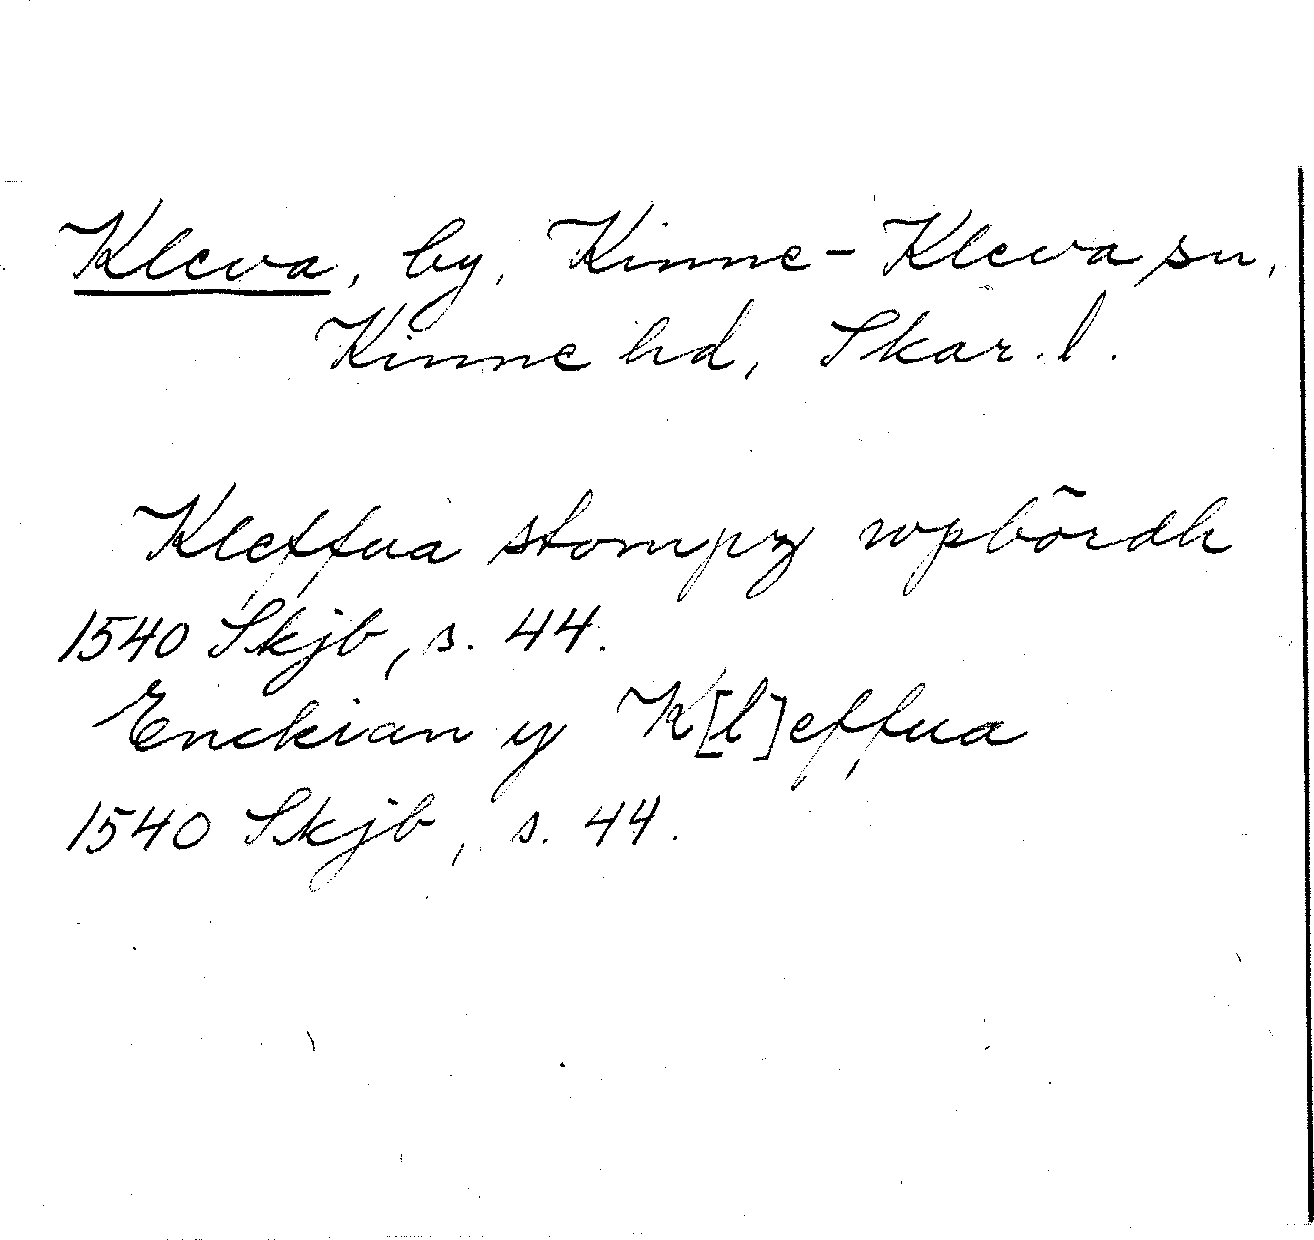 Kleva, by, Kinne-Kleva sn,
Kinne hd, Skar. l.
Kleffua stompz wpbõrdh
1540 Skjb, s. 44.
Enckian y K[l]effua
1540 Skjb, s. 44.